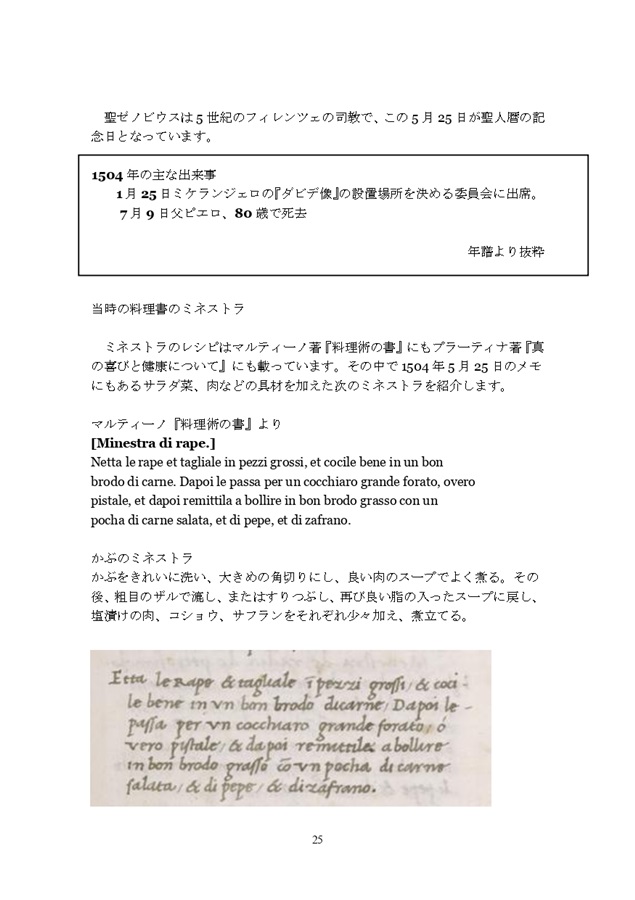 聖ゼノビウスは 5 世紀のフィレンツェの司教で、この 5 月 25 日が聖人暦の記
念日となっています。
1504 年の主な出来事
1 月 25 日ミケランジェロの『ダビデ像』の設置場所を決める委員会に出席。
7 月 9 日父ピエロ、80 歳で死去
年譜より抜粋
当時の料理書のミネストラ
ミネストラのレシピはマルティーノ著『料理術の書』にもプラーティナ著『真
の喜びと健康について』にも載っています。その中で 1504 年 5 月 25 日のメモ
にもあるサラダ菜、肉などの具材を加えた次のミネストラを紹介します。
マルティーノ『料理術の書』より
[Minestra di rape.]
Netta le rape et tagliale in pezzi grossi, et cocile bene in un bon
brodo di carne. Dapoi le passa per un cocchiaro grande forato, overo
pistale, et dapoi remittila a bollire in bon brodo grasso con un
pocha di carne salata, et di pepe, et di zafrano.
かぶのミネストラ
かぶをきれいに洗い、大きめの角切りにし、良い肉のスープでよく煮る。その
後、粗目のザルで漉し、またはすりつぶし、再び良い脂の入ったスープに戻し、
塩漬けの肉、コショウ、サフランをそれぞれ少々加え、煮立てる。
Etta le rape & tagliale ĩ pezzi grossi / & coci -
le bene in vn bon brodo di carne / Dapoi le -
passa per vn cocchiaro grande forato / ó
vero pistale / & da poi remittila a bollire
in bon brodo grasso cõ vn pocha di carne
salata / & di pepe / & di zafrano.
25